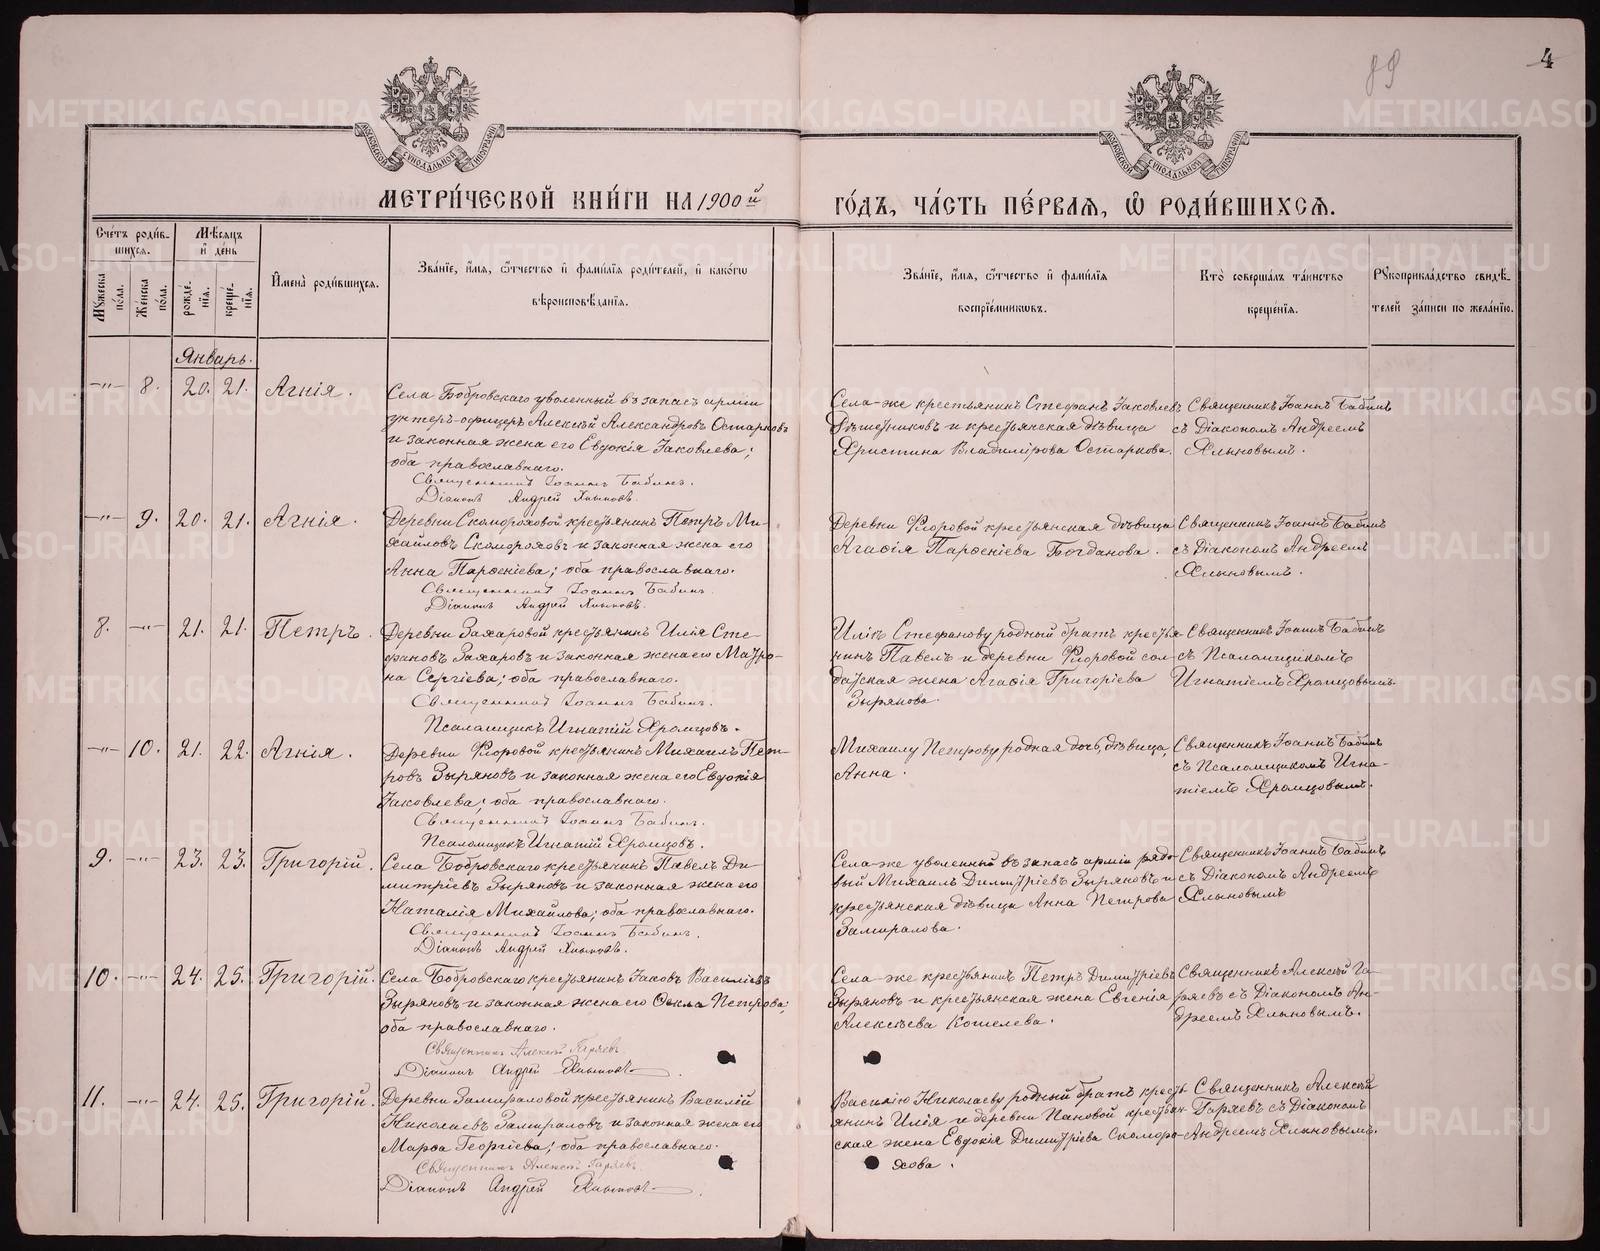 89
4
МЕТРИ́ЧЕСКОЙ КНИ́ГИ НА 1900 й
ГО́ДЪ, ЧА́СТЬ ПЕ́РВАѦ, Ѽ РОДИ́ВШИХСѦ.
Сче́тъ роди́в-
шихсѧ.
Мꙋжеска по́ла.
Же́нска по́ла.
Мѣ́сѧцъ и де́нь
рожде́-нїѧ.
креще́-нїѧ.
И҆мена̀ роди́вшихсѧ.
Зва́нїе, и҆́мѧ, ѻ҆́тчество и҆ фами́лїѧ роди́телей, и҆ како́гѡ
вѣроисповѣ́данїѧ.
Зва́нїе, и҆́мѧ, ѻ҆́тчество и҆ фами́лїѧ
воспрїе́мникѡвъ.
Кто̀ соверша́лъ та́инство
креще́нїѧ.
Рꙋкоприкла́дство свидѣ́-
телей за́писи по жела́нїю.
Январь.
—"— 8. 20. 21. Агнія.
Села Бобровскаго уволенный въ запасъ арміи
унтеръ-офицеръ Алексѣй Александровъ Остарковъ
и законная жена его Евдокія Іаковлева;
оба православнаго.
Священникъ Іоаннъ Бабинъ.
Діаконъ Андрей Хлыновъ.
Села-же крестьянинъ Стефанъ Іаковлевъ
Рѣшетниковъ и крестьянская дѣвица
Христина Владимірова Остаркова.
Священникъ Іоаннъ Бабинъ
съ Діакономъ Андреемъ
Хлыновымъ.
—"— 9. 20. 21. Агнія.
Деревни Скомороховой крестьянинъ Петръ Ми-
хайловъ Скомороховъ и законная жена его
Анна Парѳеніева; оба православнаго.
Священникъ Іоаннъ Бабинъ.
Діаконъ Андрей Хлыновъ.
Деревни Флоровой крестьянская дѣвица
Агаѳія Парѳеніева Богданова.
Священникъ Іоаннъ Бабинъ
съ Діакономъ Андреемъ
Хлыновымъ.
8. —"— 21. 21. Петръ.
Деревни Захаровой крестьянинъ Илія Сте-
фановъ Захаровъ и законная жена его Матро-
на Сергіева; оба православнаго.
Священникъ Іоаннъ Бабинъ.
Псаломщикъ Игнатій Хромцовъ.
Иліи Стефанову родный братъ крестья-
нинъ Павелъ и деревни Флоровой сол-
датская жена Агаѳія Григоріева
Зырянова.
Священникъ Іоаннъ Бабинъ
съ Псаломщикомъ
Игнатіемъ Хромцовымъ.
—"— 10. 21. 22. Агнія.
Деревни Флоровой крестьянинъ Михаилъ Пет-
ровъ Зыряновъ и законная жена его Евдокія
Іаковлева; оба православнаго.
Священникъ Іоаннъ Бабинъ.
Псаломщикъ Игнатій Хромцовъ.
Михаилу Петрову родная дочь, дѣвица,
Анна.
Священникъ Іоаннъ Бабинъ
съ Псаломщикомъ Игна-
тіемъ Хромцовымъ.
9. —"— 23. 23. Григорій.
Села Бобровскаго крестьянинъ Павелъ Ди-
митріевъ Зыряновъ и законная жена его
Наталія Михайлова; оба православнаго.
Священникъ Іоаннъ Бабинъ.
Діаконъ Андрей Хлыновъ.
Села-же уволенный въ запасъ арміи рядо-
вый Михаилъ Димитріевъ Зыряновъ и
крестьянская дѣвица Анна Петрова
Замиралова.
Священникъ Іоаннъ Бабинъ
съ Діакономъ Андреемъ
Хлыновымъ
10. —"— 24. 25. Григорій.
Села Бобровскаго крестьянинъ Іаковъ Василіевъ
Зыряновъ и законная жена его Ѳекла Петрова;
оба православнаго.
Священникъ Алексѣй Гаряевъ.
Діаконъ Андрей Хлыновъ
Села-же крестьянинъ Петръ Димитріевъ
Зыряновъ и крестьянская жена Евгенія
Алексѣева Кошелева.
Священникъ Алексѣй Га-
ряевъ съ Діакономъ Ан-
дреемъ Хлыновымъ.
11. —"— 24. 25. Григорій.
Деревни Замираловой крестьянинъ Василій
Николаевъ Замираловъ и законная жена его
Марѳа Георгіева; оба православнаго.
Священникъ Алексѣй Гаряевъ.
Діаконъ Андрей Хлыновъ.
Василію Николаеву родный братъ кресть-
янинъ Илія и деревни Пановой крестьян-
ская жена Евдокія Димитріева Скоморо-
хова.
Священникъ Алексѣй
Гаряевъ съ Діакономъ
Андреемъ Хлыновымъ.
METRIKI.GASO-URAL.RU